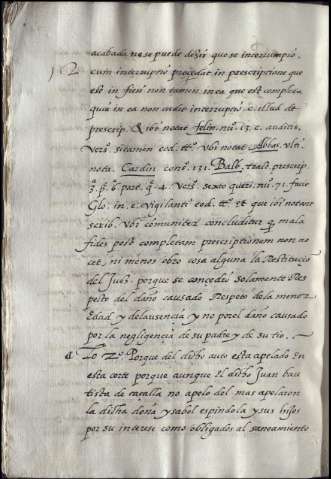 acabada no se puede dezir que se interrumpió.
cum interruptio procedat in prescriptione que
est in fieri non tamen in ea que est completa
quia in ea non cadit interruptio c. illud de
prescrip. & ibi notat felin. nu. 13. c. auditis
vers. sitamen eod. ttº vbi notat Abbas vlti.
nota. Cardin. cons. 131. Balb. tract. prescrip.
3. p. 6. part. q. 4. vers. sexto queri. nu. 71. facit
Glo. in. c. vigilanti eod. ttº et que ibi notant
scrib. vbi comuniter concluditur q mala
fides post completam prescriptionem non no
cet, ni menos obro cosa alguna la Restitucion
del Juez porque se concedio solamente Res
pecto del daño causado Respeto de la menor
Edad y del ausencia y no por el daño causado
por la negligencia de su padre y de su tio.
Lo 2º Porque del dicho auto esta apelado En
esta corte porque aunque el dicho Juan bau
tista de no apelo del mas apelaron
la dicha doña ysabel espindola y sus hijos
por su interese como obligados al saneamiento